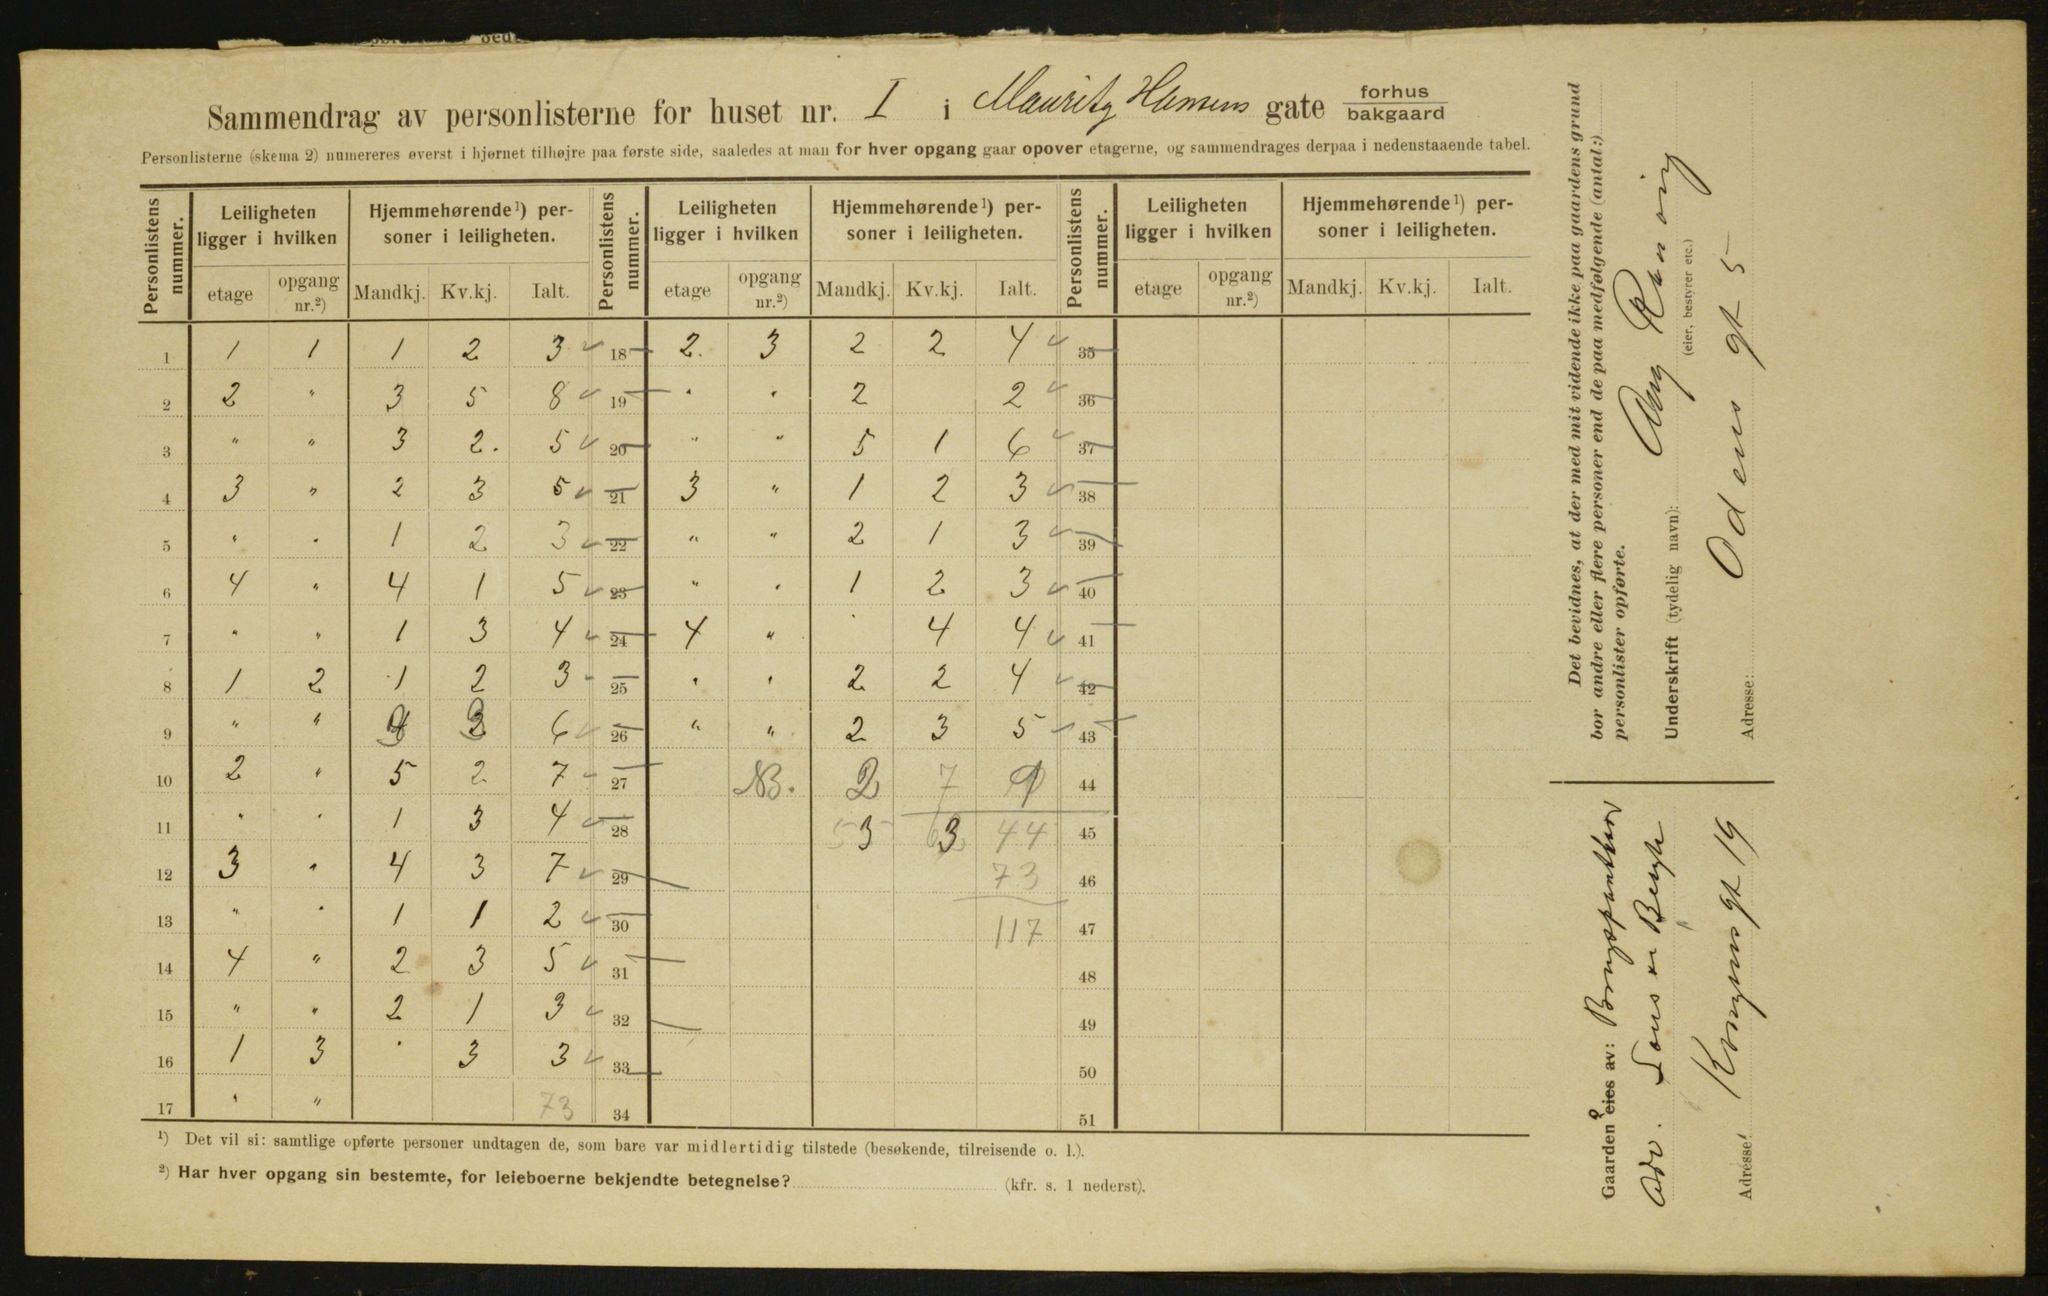 Sammendrag av personlisterne for huset nr. I i Mauritz Hansens gate forhus / bakgaard
Personlisterne (skema 2) numereres øverst i hjørnet tilhøjre paa første side, saaledes at man for hver opgang gaar opover etagerne, og sammendrages derpaa i nedenstaaende tabel.
Personlistens nummer. Leiligheten ligger i hvilken Hjemmehørende¹) personer i leiligheten. Personlistens nummer. Leiligheten ligger i hvilken Hjemmehørende¹) personer i leiligheten. Personlistens nummer. Leiligheten ligger i hvilken Hjemmehørende¹) personer i leiligheten.
etage opgang nr.²) Mandkj. Kv.kj. Ialt. etage opgang nr.²) Mandkj. Kv.kj. Ialt. etage opgang nr.²) Mandkj. Kv.kj. Ialt.
1 1 1 1 2 3 18 2. 3 2 2 4 35
2 2 " 3 5 8 19 " " 2 2 36
3 " " 3 2. 5 20 " " 5 1 6 37
4 3 " 2 3 5 21 3 " 1 2 3 38
5 " " 1 2 3 22 " " 2 1 3 39
6 4 " 4 1 5 23 " " 1 2 3 40
7 " " 1 3 4 24 4 " 4 4 41
8 1 2 1 2 3 25 " " 2 2 4 42
9 " " 3 3 6 26 " " 2 3 5 43
10 2 " 5 2 7 27 NB. 2 7 9 44
11 " " 1 3 4 28 53 63 44 45
12 3 " 4 3 7 29 73 46
13 " " 1 1 2 30 117 47
14 4 " 2 3 5 31 48
15 " " 2 1 3 32 49
16 1 3 3 3 33 50
17 " " 73 34 51
¹) Det vil si: samtlige opførte personer undtagen de, som bare var midlertidig tilstede (besøkende, tilreisende o. l.).
²) Har hver opgang sin bestemte, for leieboerne bekjendte betegnelse? (kfr. s. 1 nederst).
Det bevidnes, at der med mit vidende ikke paa gaardens grund
bor andre eller flere personer end de paa medfølgende (antal:)
personlister opførte.
Underskrift (tydelig navn): Aug
(eier, bestyrer etc.)
Adresse: Odens gt 5
Gaarden eies av:
Adv.
Adresse: Kongens gt 19